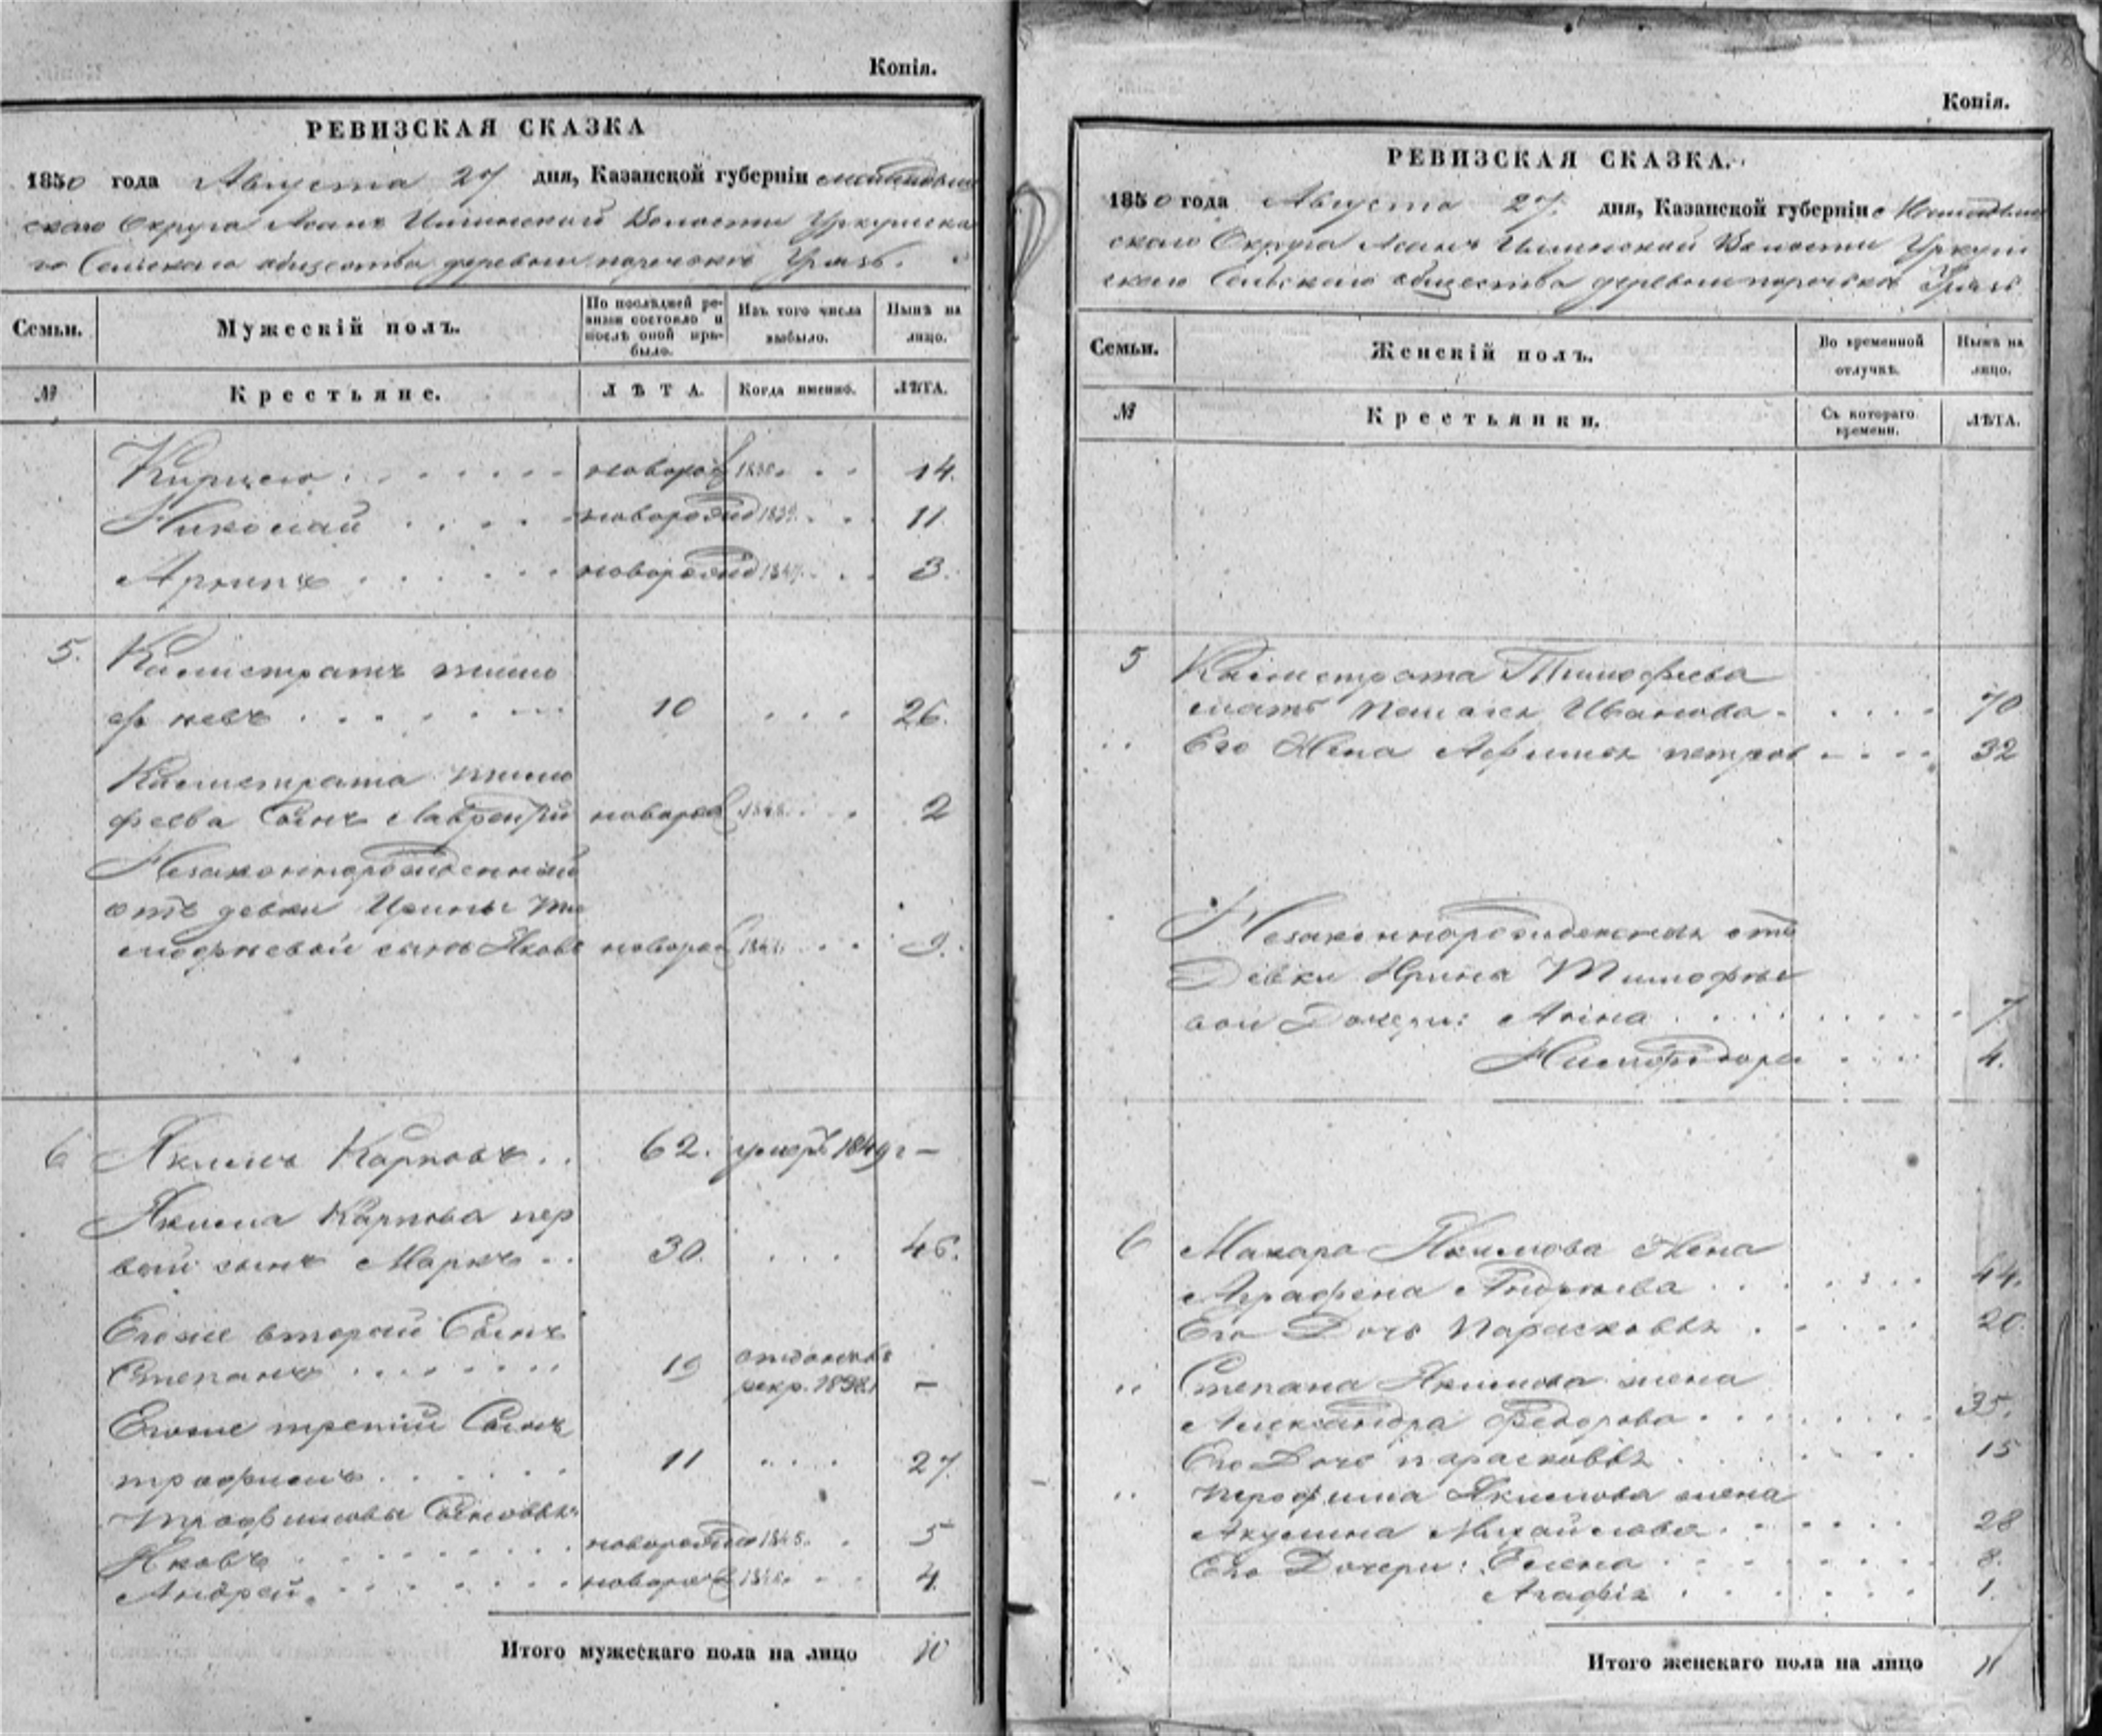 Копія.
РЕВИЗСКАЯ СКАЗКА
1850 года Августа 27 дня, Казанской губерніи
скаго Округа Асанъ Илинской Волости
го Сельскаго общества деревни поречка Урязь.
Семьи.
Мужескій полъ.
По послѣдней ре-
визіи состояло и
послѣ оной при-
было.
Изъ того числа
выбыло.
Нынѣ на
лицо.
№
Крестьяне.
ЛѢТА.
Когда именно.
ЛѢТА.
новорож 14.
Николай . . . . новорожд 1839. . . 11
Архипъ . . . . . новорожд 1847. . . 3.
5. Калистратъ тимо
ф ѣевъ . . . . . . 10 . . . 26.
Калистрата тимо
феева Сынъ Лаврентій новорож 1848. . . 2
Незаконнорожденный
отъ девки Ирины ти
мофѣевой сынъ Яковъ новорож
6 Якимъ Карповъ . . 62. умеръ 1849 г —
Якима Карпова пер
вый сынъ Маркъ . . 30. . . . 46.
Егоже второй Сынъ
Степанъ . . . . . . 19 отданъ въ
рекр. 1838 г —
Егоже третій Сынъ
трофимъ . . . . . 11 . . . . 27
Трофимовы Сыновья
Яковъ . . . . . . новорожд 1845. . 5
Андрей. . . . . . новорож 1846. . . 4.
Итого мужескаго пола на лицо 10
Копія.
РЕВИЗСКАЯ СКАЗКА.
1850 года Августа 27. дня, Казанской губерніи
скаго Округа Асанъ Илинской Волости
скаго Сельскаго общества деревни поречка Урязь
Семьи.
Женскій полъ.
Во временной
отлучкѣ.
Нынѣ на
лицо.
№
Крестьянки.
Съ котораго
времени.
ЛѢТА.
5 Калистрата Тимофеева
мать Пелагея Иванова . . . . . 70
Его Жена петров . . . . 32
Незаконнорожденная отъ
Девки Ирина Тимофѣе
вой Дочери: Анна . . . . . . 7
. . . 4.
6 Макара Якимова Жена
Аграфена Андрѣева . . . . . . 44.
Его Дочь Парасковья . . . . . 20.
Степана Якимова жена
Александра Федорова . . . . . . 35.
Его Дочь парасковья . . . . . 15
Якимова жена
Акулина Михайлова . . . . . . 28
Его Дочери: Елена . . . . . . 8.
Агафія . . . . . . 1.
Итого женскаго пола на лицо 11